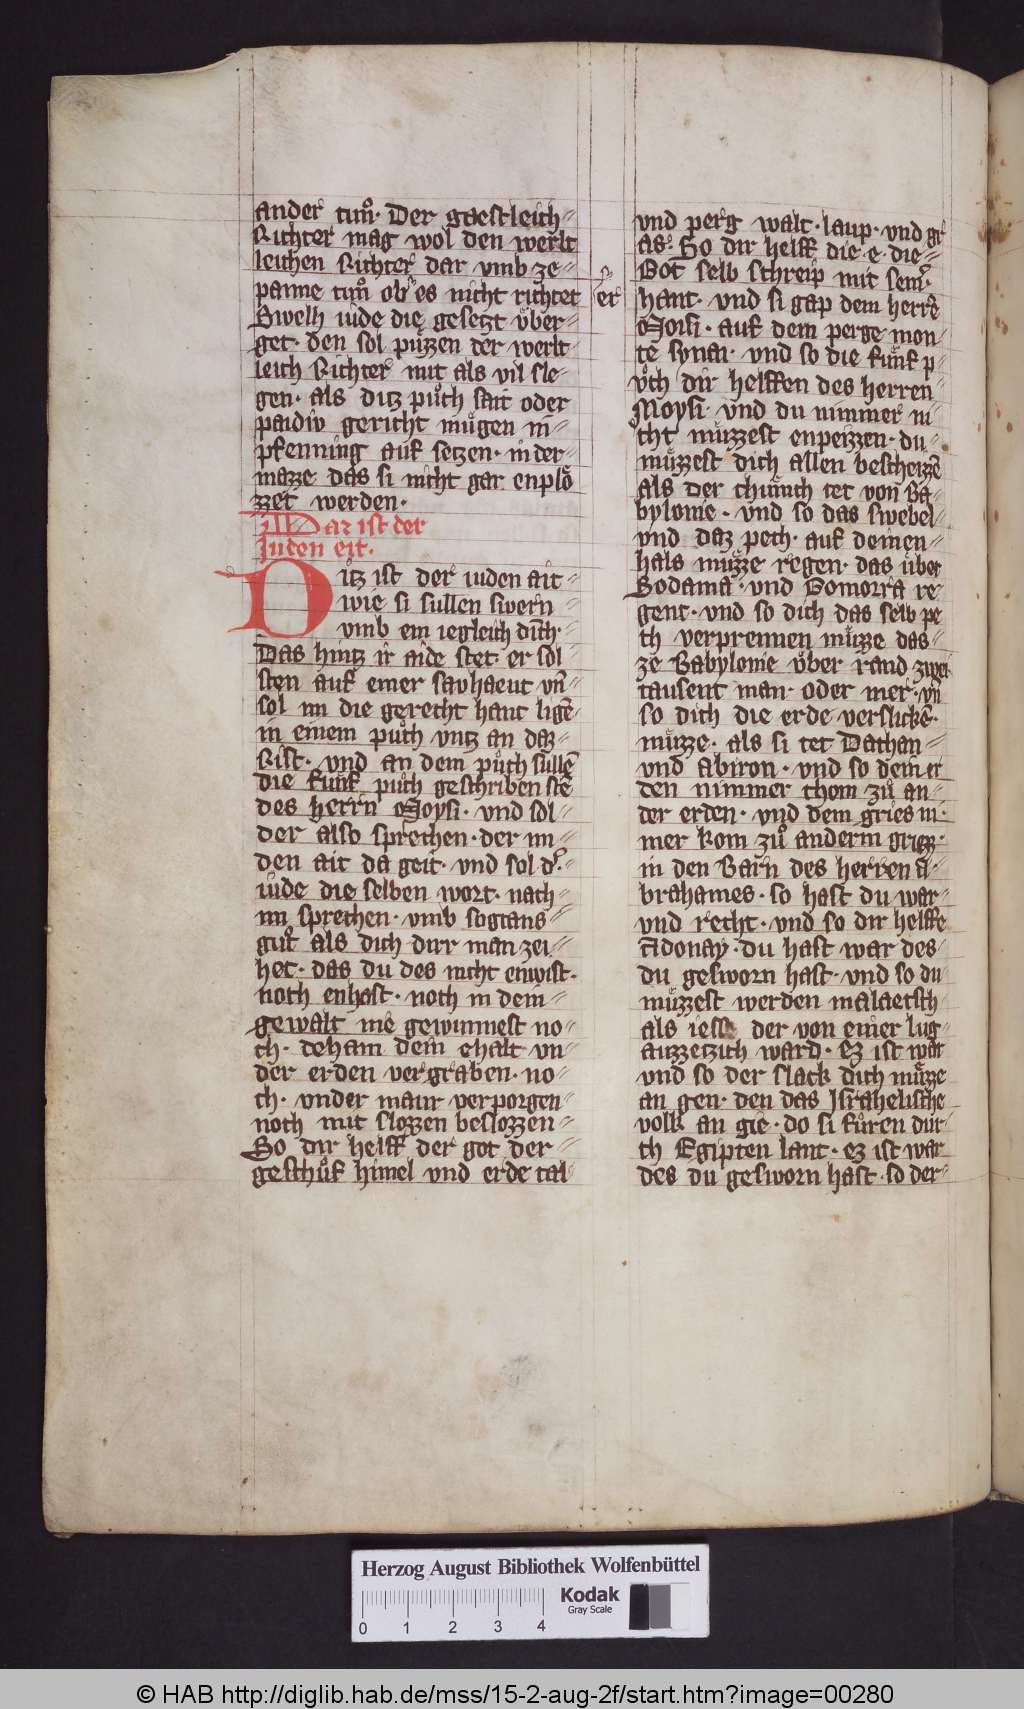 ander tuͦn. Der gaestleich
Richter mag wol den werlt
leichen Richter dar vmb ze
panne tuͦn ob er es nicht richtet
Swelh iude die gesetzt uͤber
get. den sol puzzen der werlt
leich Richter mit als vil sle
gen. als ditz puͦch sait oder
paidiv gericht muͤgen in
pfenning auf setzen. in der
mazze das si nicht gar enploͤ
zzet werden.
Daz ist der
Juden eit.
Ditz ist der iuden ait
wie si sullen swern
vmb ein iegleich dinch.
Das hintz ir aide stet. er sol
sten auf einer savhaeut vn̄
sol im die gerecht hant ligē
in einem puͦch vntz an daz
Rist. vnd an dem puͦch sullē
die funf puͦch geschriben stē
des herrn Moysi. vnd sol
der also sprechen. der im
den ait da geit. vnd sol dˀ
iude die selben wort. nach
im sprechen. vmb sogtans
guͦt als dich dirr man zei
het. das du des nicht enwist.
noch enhast. noch in dein
gewalt nie gewunnest no
ch. dehain dein ehalt vn
der erden vergraben. no
ch. vnder maur verporgen
noch mit slozzen beslozzen
So dir helff der got der
geschuͦf himel vnd erde tal
vnd perg walt. laup. vnd gr
as. So dir helff die e. die
Got selb schreip mit seinˀ
hant. vnd si gap dem herrē
Moisi. auf dem perge mon
te synai. vnd so die fuͤnf p
uͦch dir helffen des herren
Moysi. vnd du nimmer ni
cht muͤzzest enpeizzen. du
muͤzzest dich allen bescheizē
als der chuͤnch tet von Ba
bylonie. vnd so das swebel
vnd daz pech. auf deinen
hals muͤzze regen. das uͤber
Sodama. vnd Gomorra re
gent. vnd so dich das selb pe
ch verprennen muͤzze das
ze Babylonie uͤber rand zwei
tausent man. oder mer. vn̄
so dich die erde verslickē.
muͤzze. als si tet Dathan
vnd Abiron. vnd so dein er
den nimmer chom zuͦ an
der erden. vnd dem gries ni
mer kom zuͦ anderm griezz.
in den Barn des herren A
brahames. so hast du war
vnd recht. vnd so dir helffe
Adonay. du hast war des
du gesworn hast. vnd so du
muͤzzest werden malaetsch
als iessi der von einer lug
auzzetzich ward. Ez ist war
vnd so der slack dich muͤzze
an gen. den das Israhelische
volk an gie. do si fuͦren dur
ch Egipten lant. ez ist war
des du gesworn hast. so der
Herzog August Bibliothek Wolfenbüttel
Kodak
Gray Scale
0 1 2 3 4
© HAB http://diglib.hab.de/mss/15-2-aug-2f/start.htm?image=00280